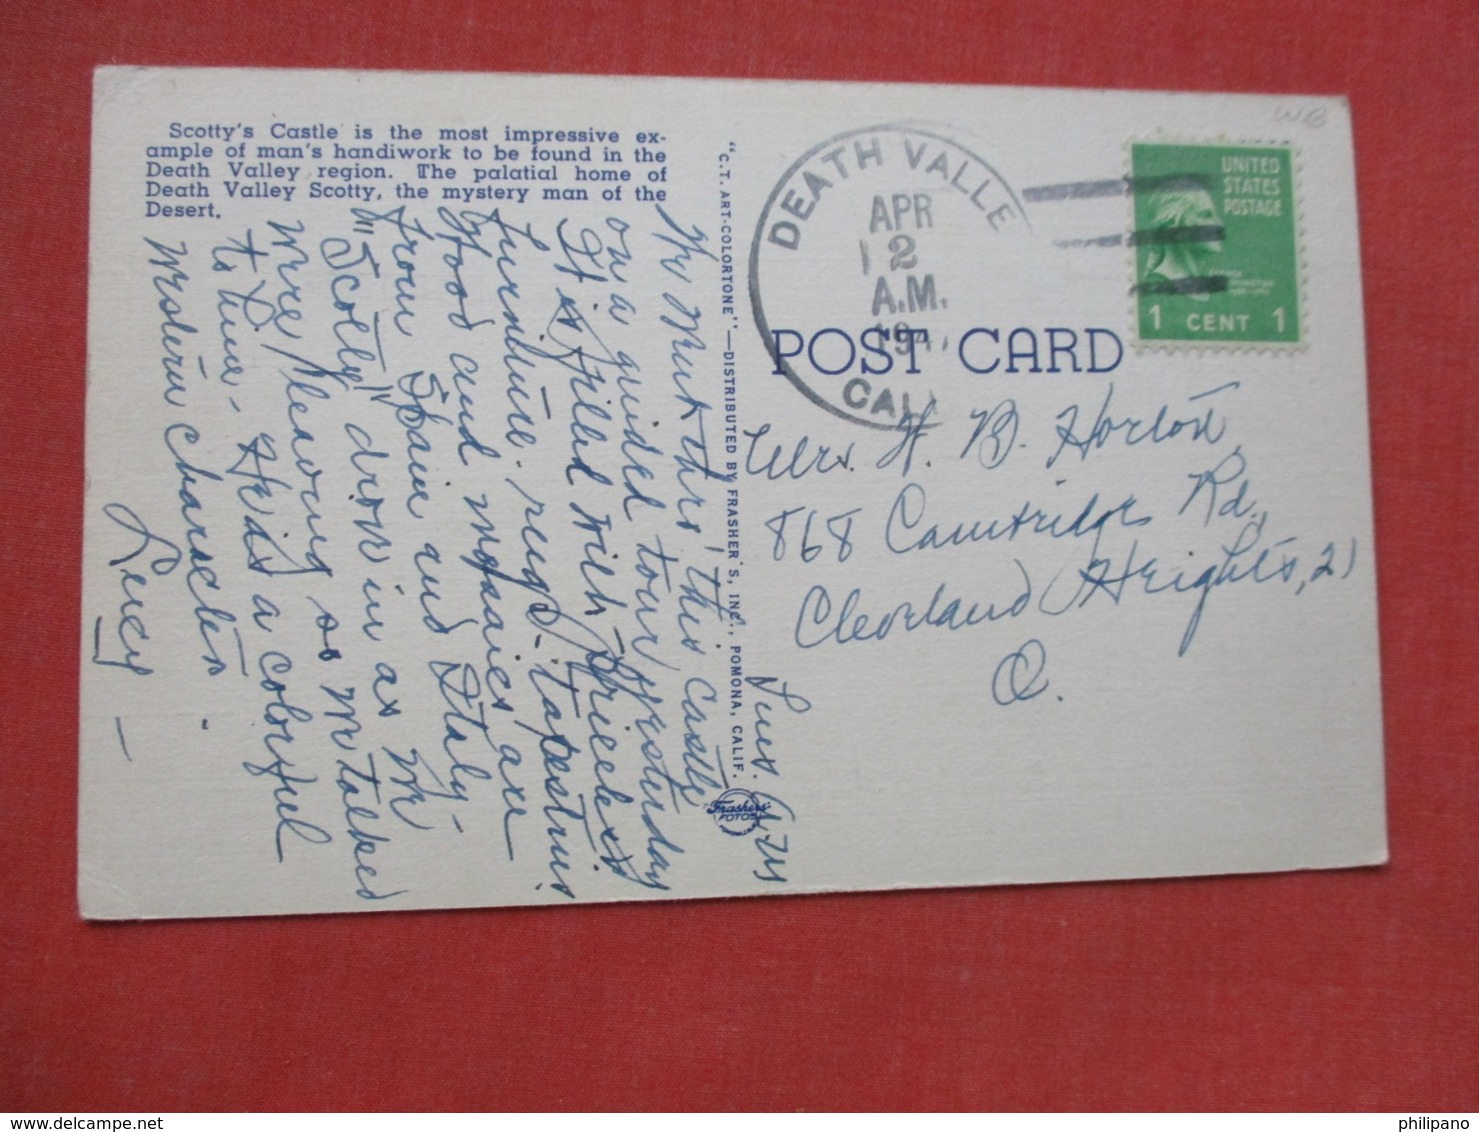 Scotty's Castle is the most impressive ex-
ample of man's handiwork to be found in the
Death Valley region. The palatial home of
Death Valley Scotty, the mystery man of the
Desert.
"C.T. ART-COLORTONE"—DISTRIBUTED BY FRASHER'S, INC., POMONA, CALIF.
Frashers'
FOTOS
POST CARD
DEATH VALLE
APR
2
A.M.
194
CALI
UNITED
STATES
POSTAGE
1 CENT 1
WB
Mrs. H. B. Horton
868 Cambridge Rd.,
Cleveland Heights, 21
O.
Tues.
We went thru this castle
on a guided tour yesterday
It is filled with priceless
furniture. rugs - tapestries
Wood and mosaics are
from Spain and Italy -
"Scotty" drove in as we
were leaving so we talked
to him - He is a colorful
western character.
Lucy —
philipano